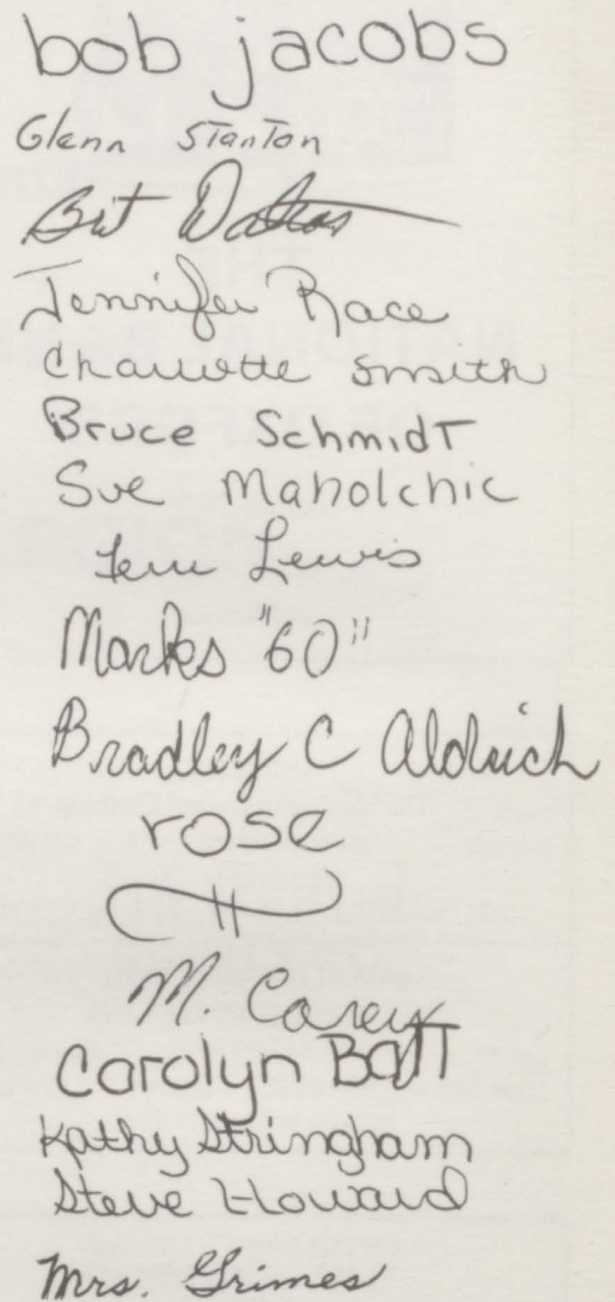 bob jacobs
Glenn Stanton
Jennifer Race
Charlotte Smith
Bruce Schmidt
Sue Maholchic
Lewis
Marks "60"
Bradley C Aldrich
rose
M. Carey
Carolyn Batt
Kathy Stringham
Steve Howard
Mrs. Grimes